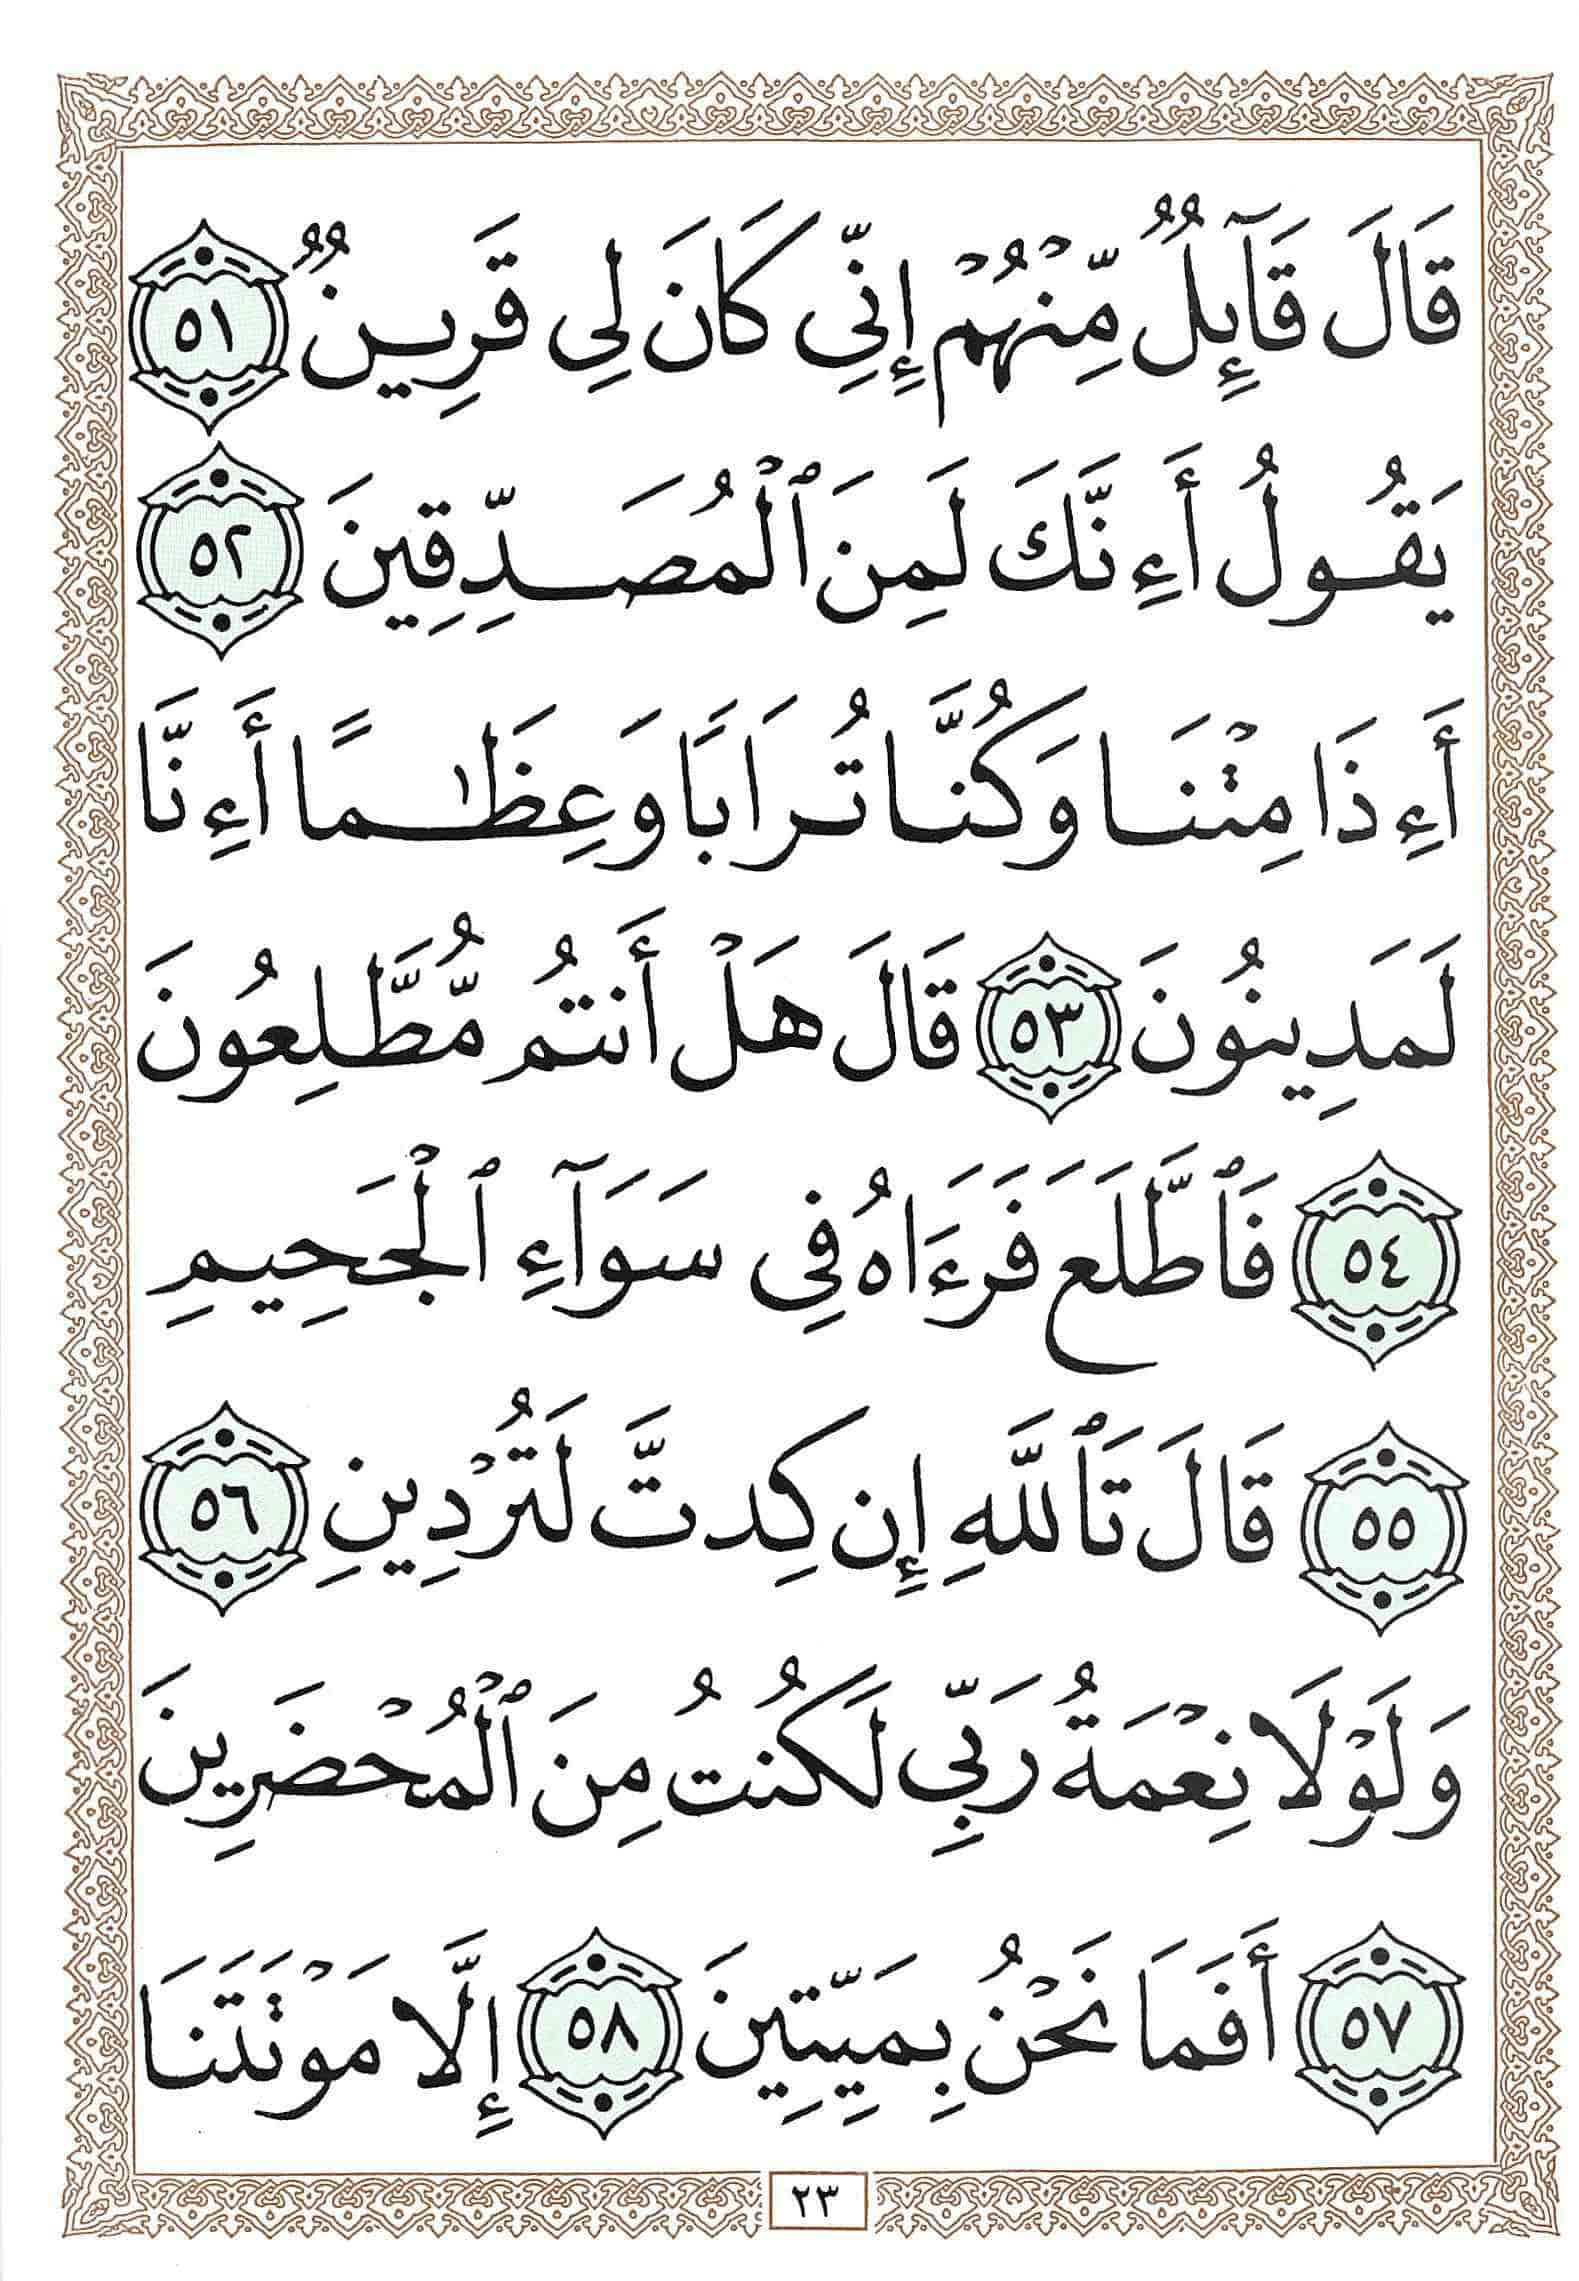 قَالَ قَآئِلٌ مِّنْهُمْ إِنِّى كَانَ لِى قَرِينٌ ٥١
يَقُولُ أَءِنَّكَ لَمِنَ ٱلْمُصَدِّقِينَ ٥٢
أَءِذَا مِتْنَا وَكُنَّا تُرَابًا وَعِظَـٰمًا أَءِنَّا
لَمَدِينُونَ ٥٣ قَالَ هَلْ أَنتُم مُّطَّلِعُونَ
٥٤ فَٱطَّلَعَ فَرَءَاهُ فِى سَوَآءِ ٱلْجَحِيمِ
٥٥ قَالَ تَٱللَّهِ إِن كِدتَّ لَتُرْدِينِ ٥٦
وَلَوْلَا نِعْمَةُ رَبِّى لَكُنتُ مِنَ ٱلْمُحْضَرِينَ
٥٧ أَفَمَا نَحْنُ بِمَيِّتِينَ ٥٨ إِلَّا مَوْتَتَنَا
٢٣